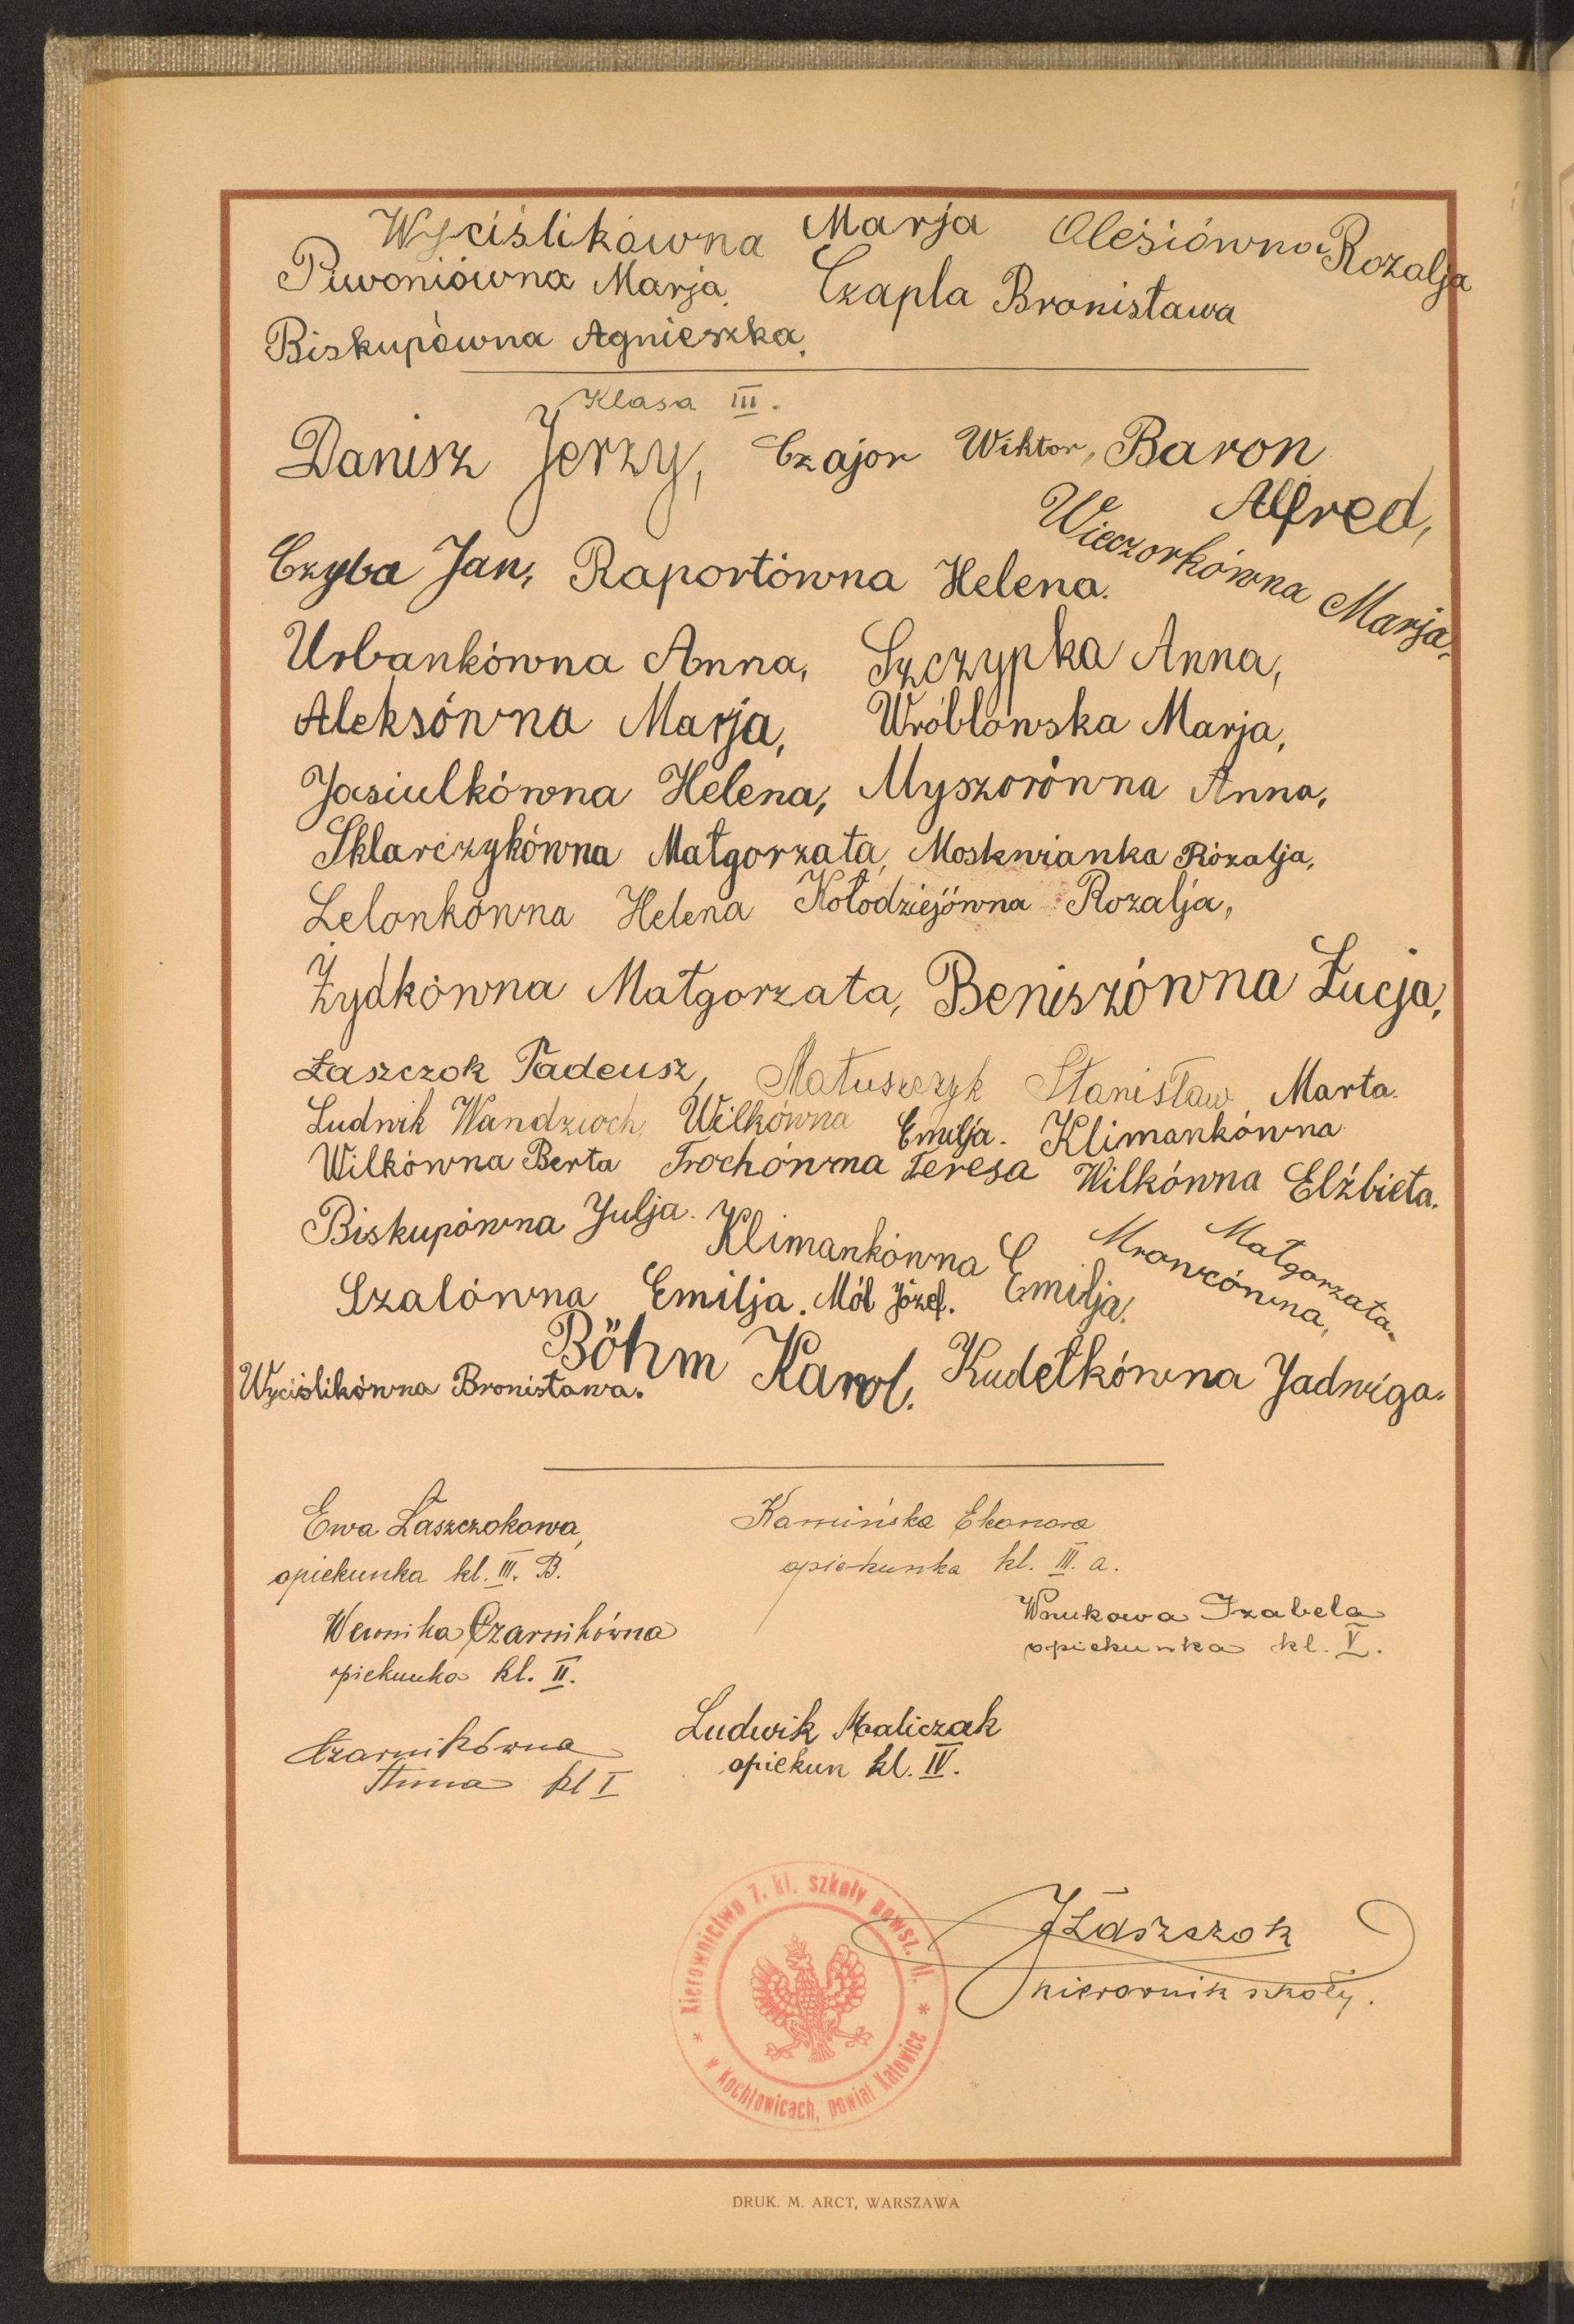 Wyciślikówna Marja Olesiówna Rozalja
Piwoniówna Marja. Czapla Bronisława
Biskupówna Agnieszka.
Klasa III.
Danisz Jerzy, Czajor Wiktor, Baron Alfred,
Wieczorkówna Marja.
Czyba Jan, Raportówna Helena.
Urbankówna Anna, Szczypka Anna,
Aleksówna Marja, Wróblowska Marja,
Jasiulkówna Helena, Myszorówna Anna,
Sklarczykówna Małgorzata, Moskwianka Rózalja,
Lelonkówna Helena Kołodziejówna Rozalja,
Żydkówna Małgorzata, Beniszówna Łucja,
Łaszczok Tadeusz, Matuszczyk Stanisław Marta.
Ludwik Wandzioch, Wilkówna Emilja. Klimankówna
Wilkówna Berta Trochówna Teresa Wilkówna Elźbieta.
Biskupówna Julja. Klimankówna Emilja. Mrowcówna, Małgorzata.
Szalówna Emilja. Mól Józef.
Wyciślikówna Bronisława. Böhm Karol. Kudełkówna Jadwiga.
Ewa Łaszczokowa,
opiekunka kl. III. B.
Kamińska Eleonora
opiekunka kl. III. a.
Weronika Czarnikówna
opiekunka kl. II.
Wnukowa Izabela
opiekunka kl. V.
Czarnikówna
kl I
Ludwik Maliczak
opiekun kl. IV.
JŁaszczok
kierownik szkoły.
Kierownictwo 7. kl. szkoły powsz. II.
* w Kochłowicach, powiat Katowice *
DRUK. M. ARCT, WARSZAWA